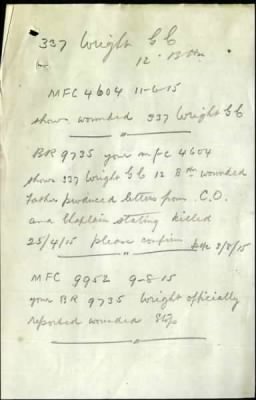 337 Wright G C
12 Btn
MFC 4604 11-6-15
shows wounded 337 Wright G C
BR 9735 your mfc 4604
shows 337 Wright G C 12 Btn wounded
Father produced letters from C.O.
and Chaplain stating killed
25/4/15 please confirm 3/8/15
MFC 9952 9-8-15
your BR 9735 Wright officially
reported wounded